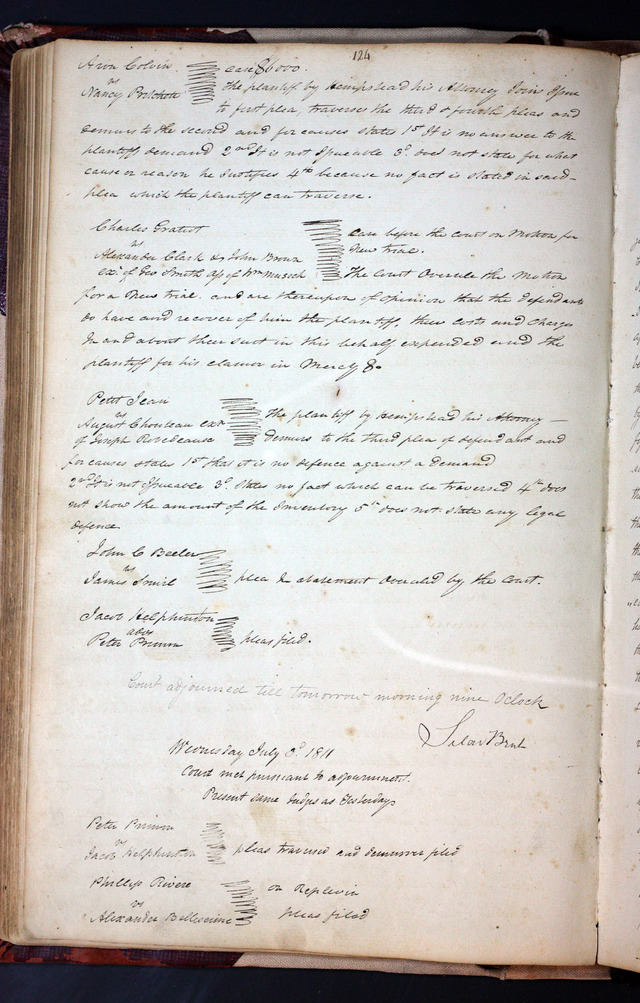 124
Aron Colvin
vs
Nancy Pritchett
case $6000.
The plantiff by Hempstead his Attorney Joins Issue
to first plea, traverses the third & fourth pleas and
demurs to the second and for causes states 1st It is no answer to the
plantiff demand 2nd It is not Issueable 3d does not state for what
cause or reason he Justifies 4th because no fact is stated in said
plea which the plantiff can traverse.
Charles Gratiot
vs
Alexander Clark & John Brown
exrs of Geo Smith
case before the court on Motion for
New trial.
The Court Overule the Motion
for a New trial. and are thereupon of opinion that the defendants
do have and recover of him the plantiff, their costs and charges
In and about their suit in this behalf expended and the
plantiff for his clamor in Mercy &c
Petit Jean
vs
August Chouteau exr
of Joseph Robedeause
The plantiff by Hempstead his Attorney
demurs to the third plea of defendant and
for causes states 1st that it is no defence against a demand
2nd It is not Issueable 3d States no fact which can be traversed 4th does
not show the amount of the Inventory 5th does not state any legal
defence
John C Beeler
vs
James
plea in abatement Overuled by the court.
Jacob Helphinston
advs
Peter Primm
pleas filed.
Court adjourned till tomorrow morning nine Oclock
Silas Bent
Wednesday July 3d 1811
Court met pursuant to adjournment.
Present same Judges as Yesterday
Peter Primm
vs
Jacob Helphinston
pleas traversed and demurrer filed
Phillip Rivere
vs
Alexander Bellescime
on Replevin
pleas filed